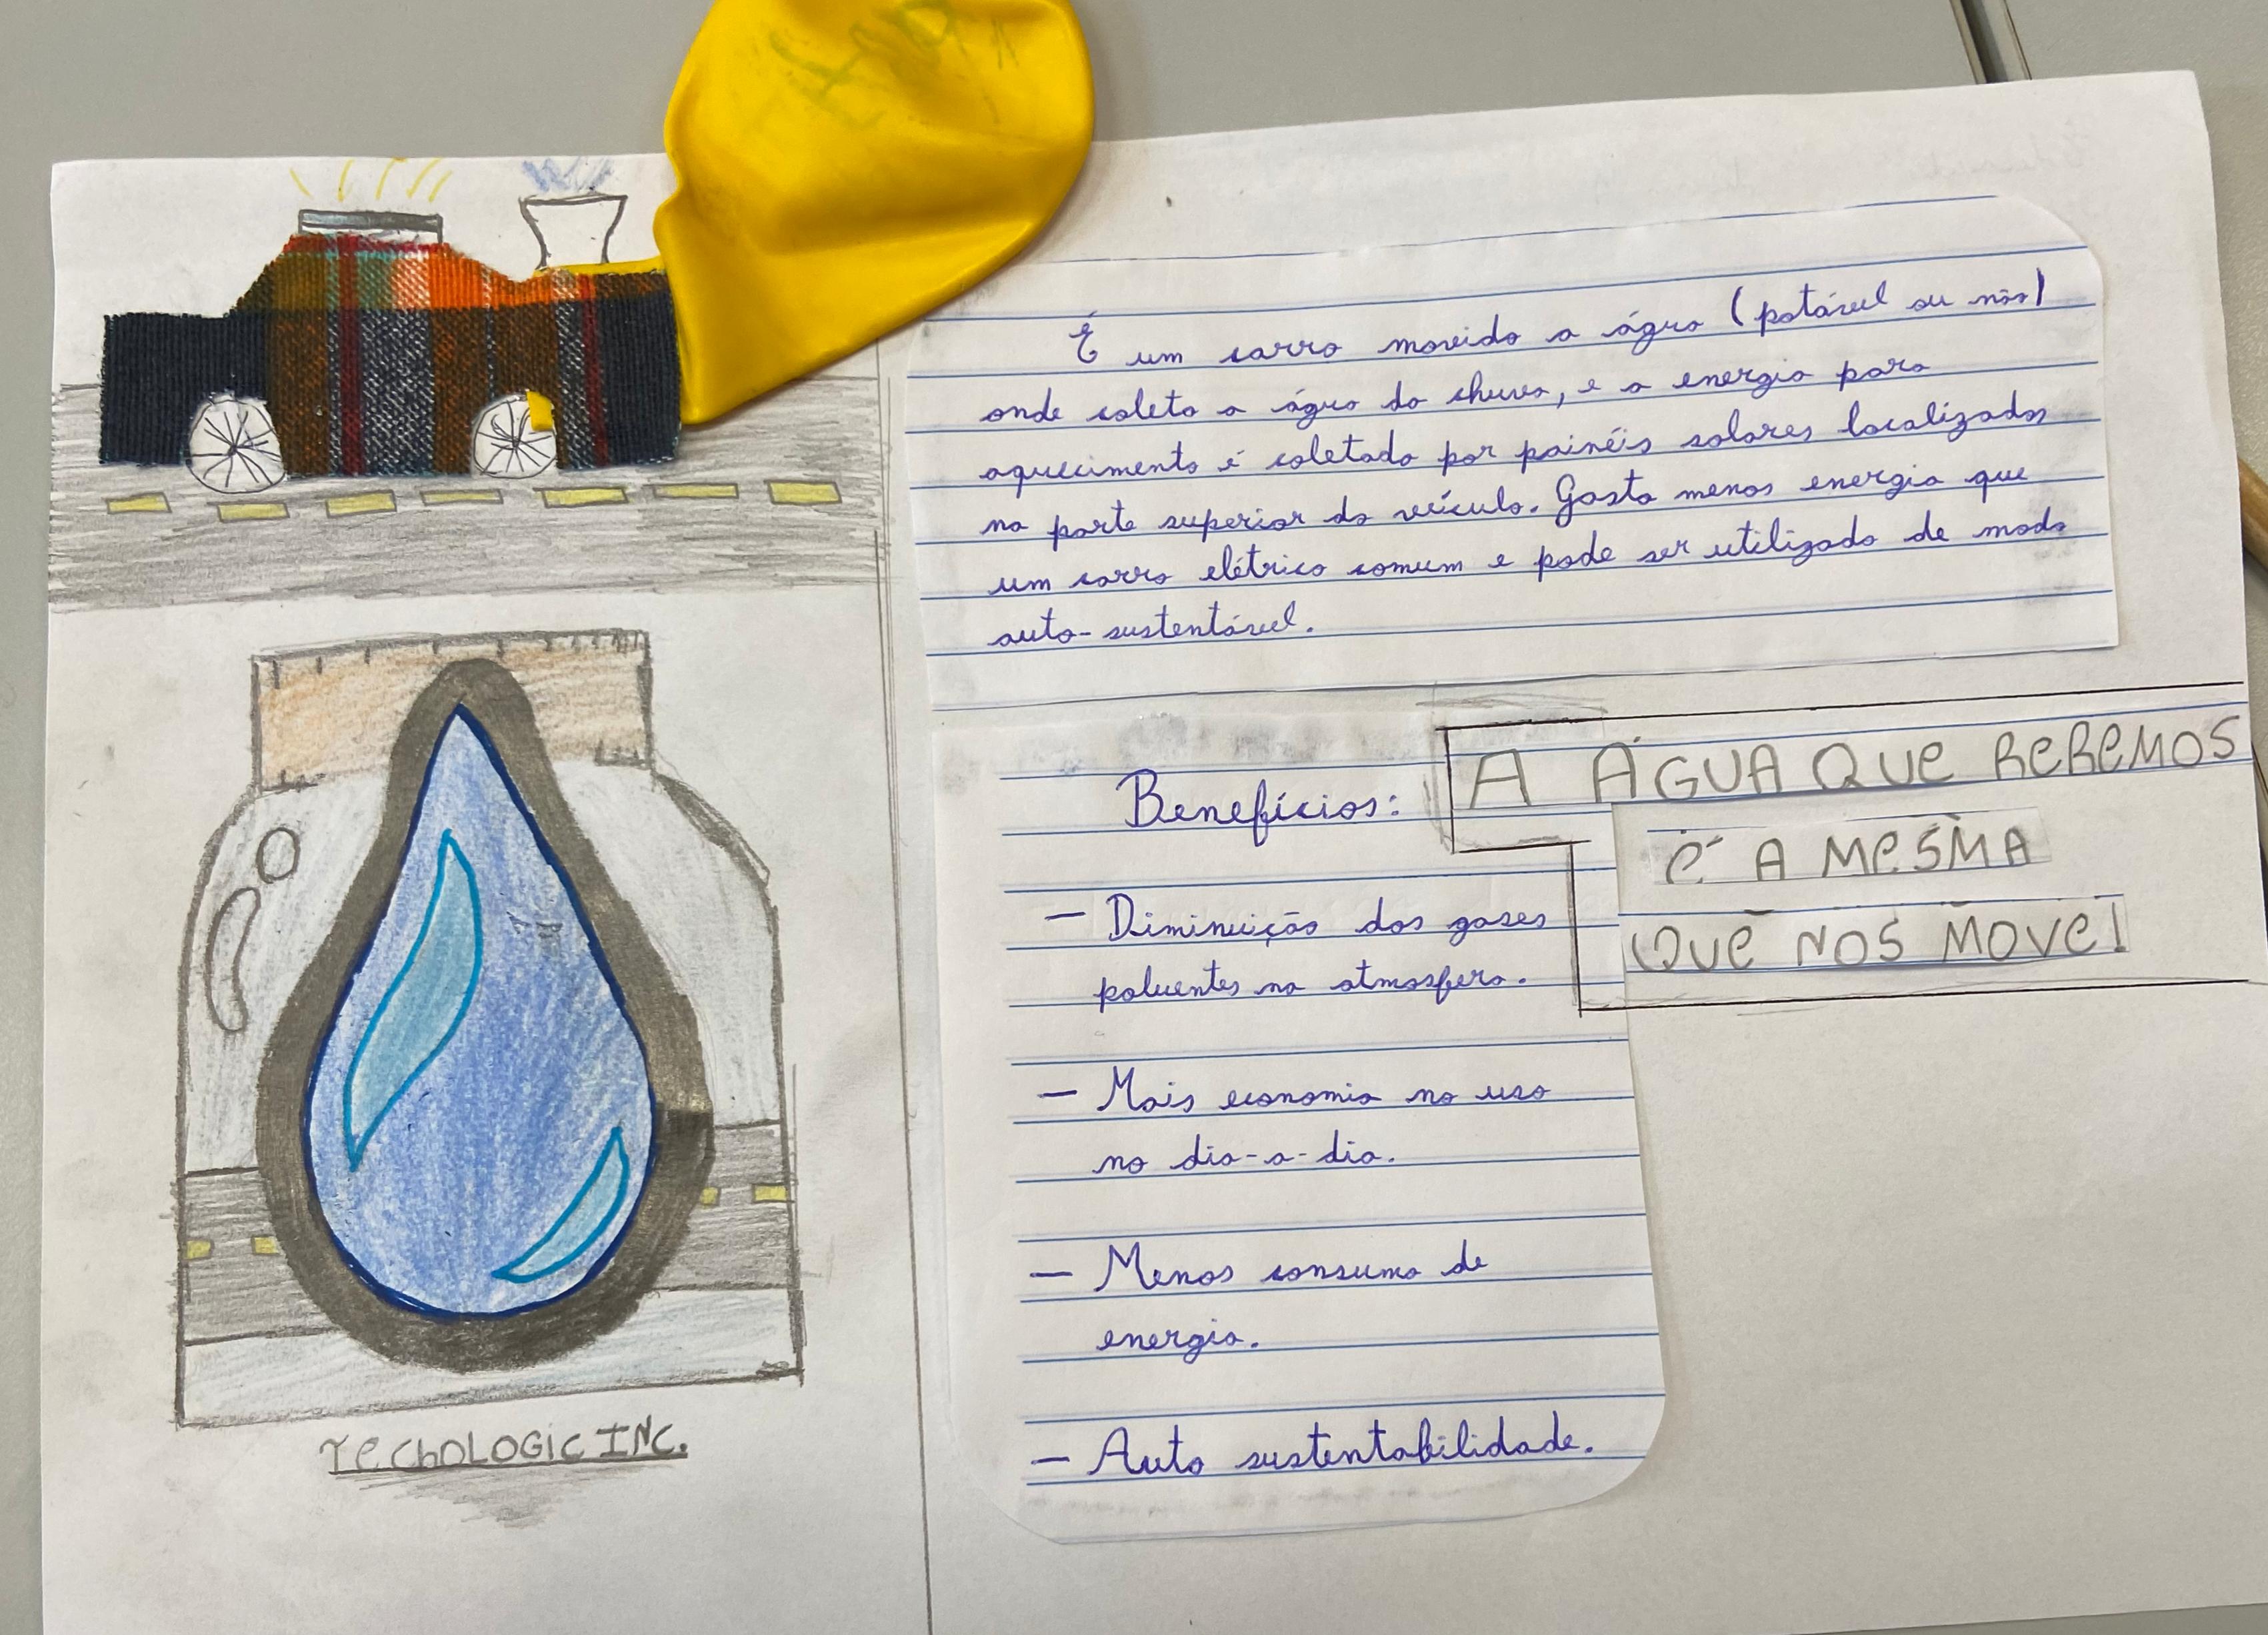 É um carro movido a água (potável ou não)
onde coleta a água da chuva, e a energia para
aquecimento é coletada por painéis solares localizados
na parte superior do veículo. Gasta menos energia que
um carro elétrico comum e pode ser utilizado de modo
auto-sustentável.
Benefícios:
- Diminuição dos gases
poluentes na atmosfera.
- Mais economia no uso
no dia-a-dia.
- Menos consumo de
energia.
- Auto sustentabilidade.
A ÁGUA QUE BEBEMOS
É A MESMA
QUE NOS MOVE!
TEChOLOGIC INC.